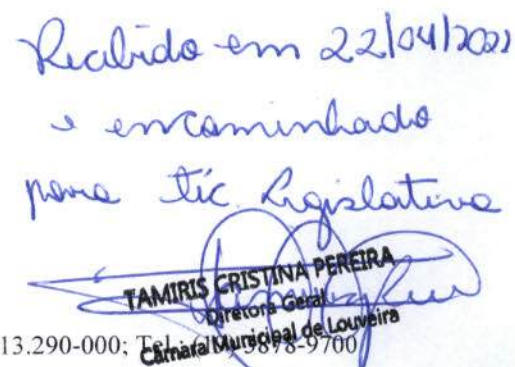 Recebido em 22/04/2022
e encaminhado
para Téc. Legislativa
TAMIRIS CRISTINA PEREIRA
Diretora Geral
Câmara Municipal de Louveira
13.290-000; 3878-9700